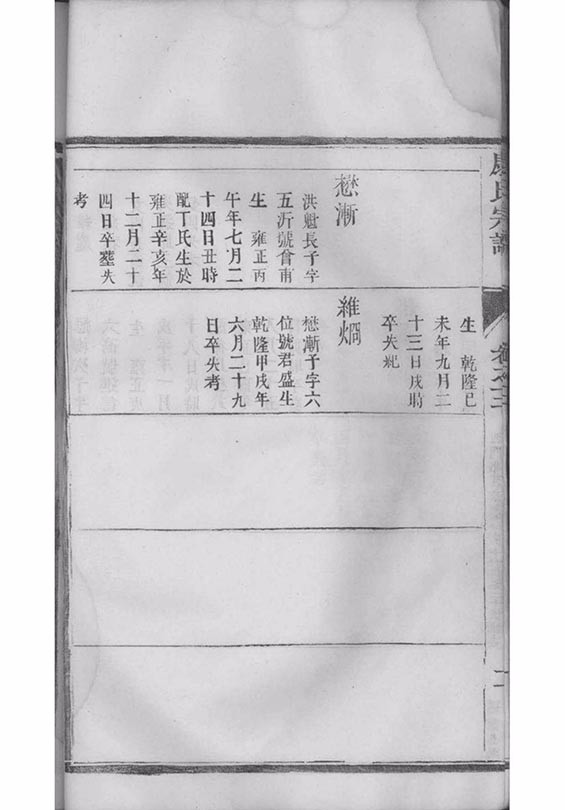 康氏宗譜
卷之三
二
懋漸
洪魁長子字
五沂號曾南
生 雍正丙
午年七月二
十四日丑時
配丁氏生於
雍正辛亥年
十二月二十
四日卒塟失
考
生 乾隆己
未年九月二
十三日戌時
卒失紀
維烱
懋漸子字六
位號君盛生
乾隆甲戌年
六月二十九
日卒失考